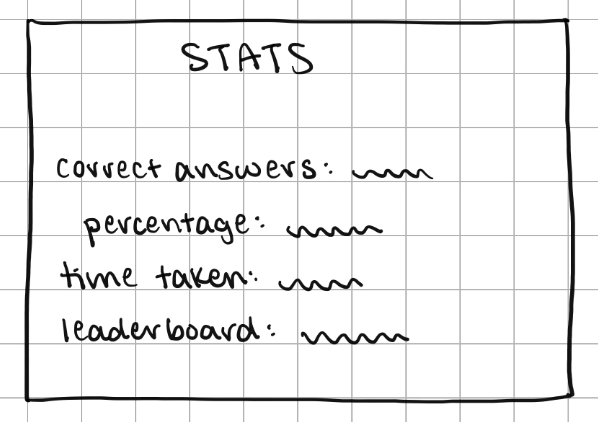 STATS
correct answers:
percentage:
time taken:
leaderboard: